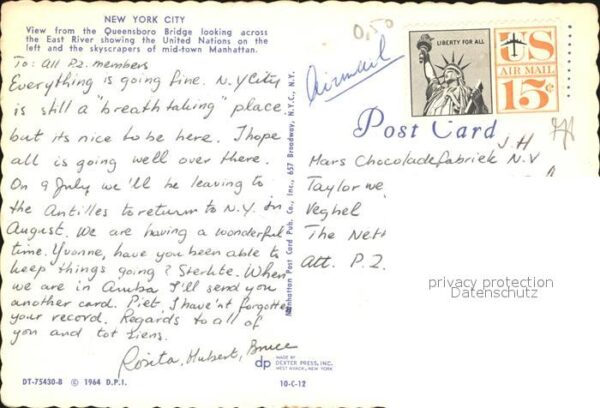 NEW YORK CITY
View from the Queensboro Bridge looking across
the East River showing the United Nations on the
left and the skyscrapers of mid-town Manhattan.
To: all P.Z. members
Everything is going fine. N.Y City
is still a "breath taking" place
but its nice to be here. I hope
all is going well over there.
On 9 July we'll be leaving to
the Antilles to return to N.Y. in
August. We are having a wonderful
time. Yvonne, have you been able to
keep things going? Sterkte. When
we are in Aruba I'll send you
another card. Piet, I hav'nt forgotten
your record. Regards to all of
you and tot ziens.
Rosita, Hubert, Bruce
DT-75430-B © 1964 D.P.I.
Manhattan Post Card Pub. Co., Inc., 657 Broadway, N.Y.C., N.Y.
dp MADE BY
DEXTER PRESS, INC.
WEST NYACK, NEW YORK
10-C-12
0,50
Airmail
LIBERTY FOR ALL
US
AIR MAIL
15¢
Post Card
J.H
Mars Chocoladefabriek N.V
Taylor we
Veghel
The Neth
Att. P.Z.
privacy protection
Datenschutz